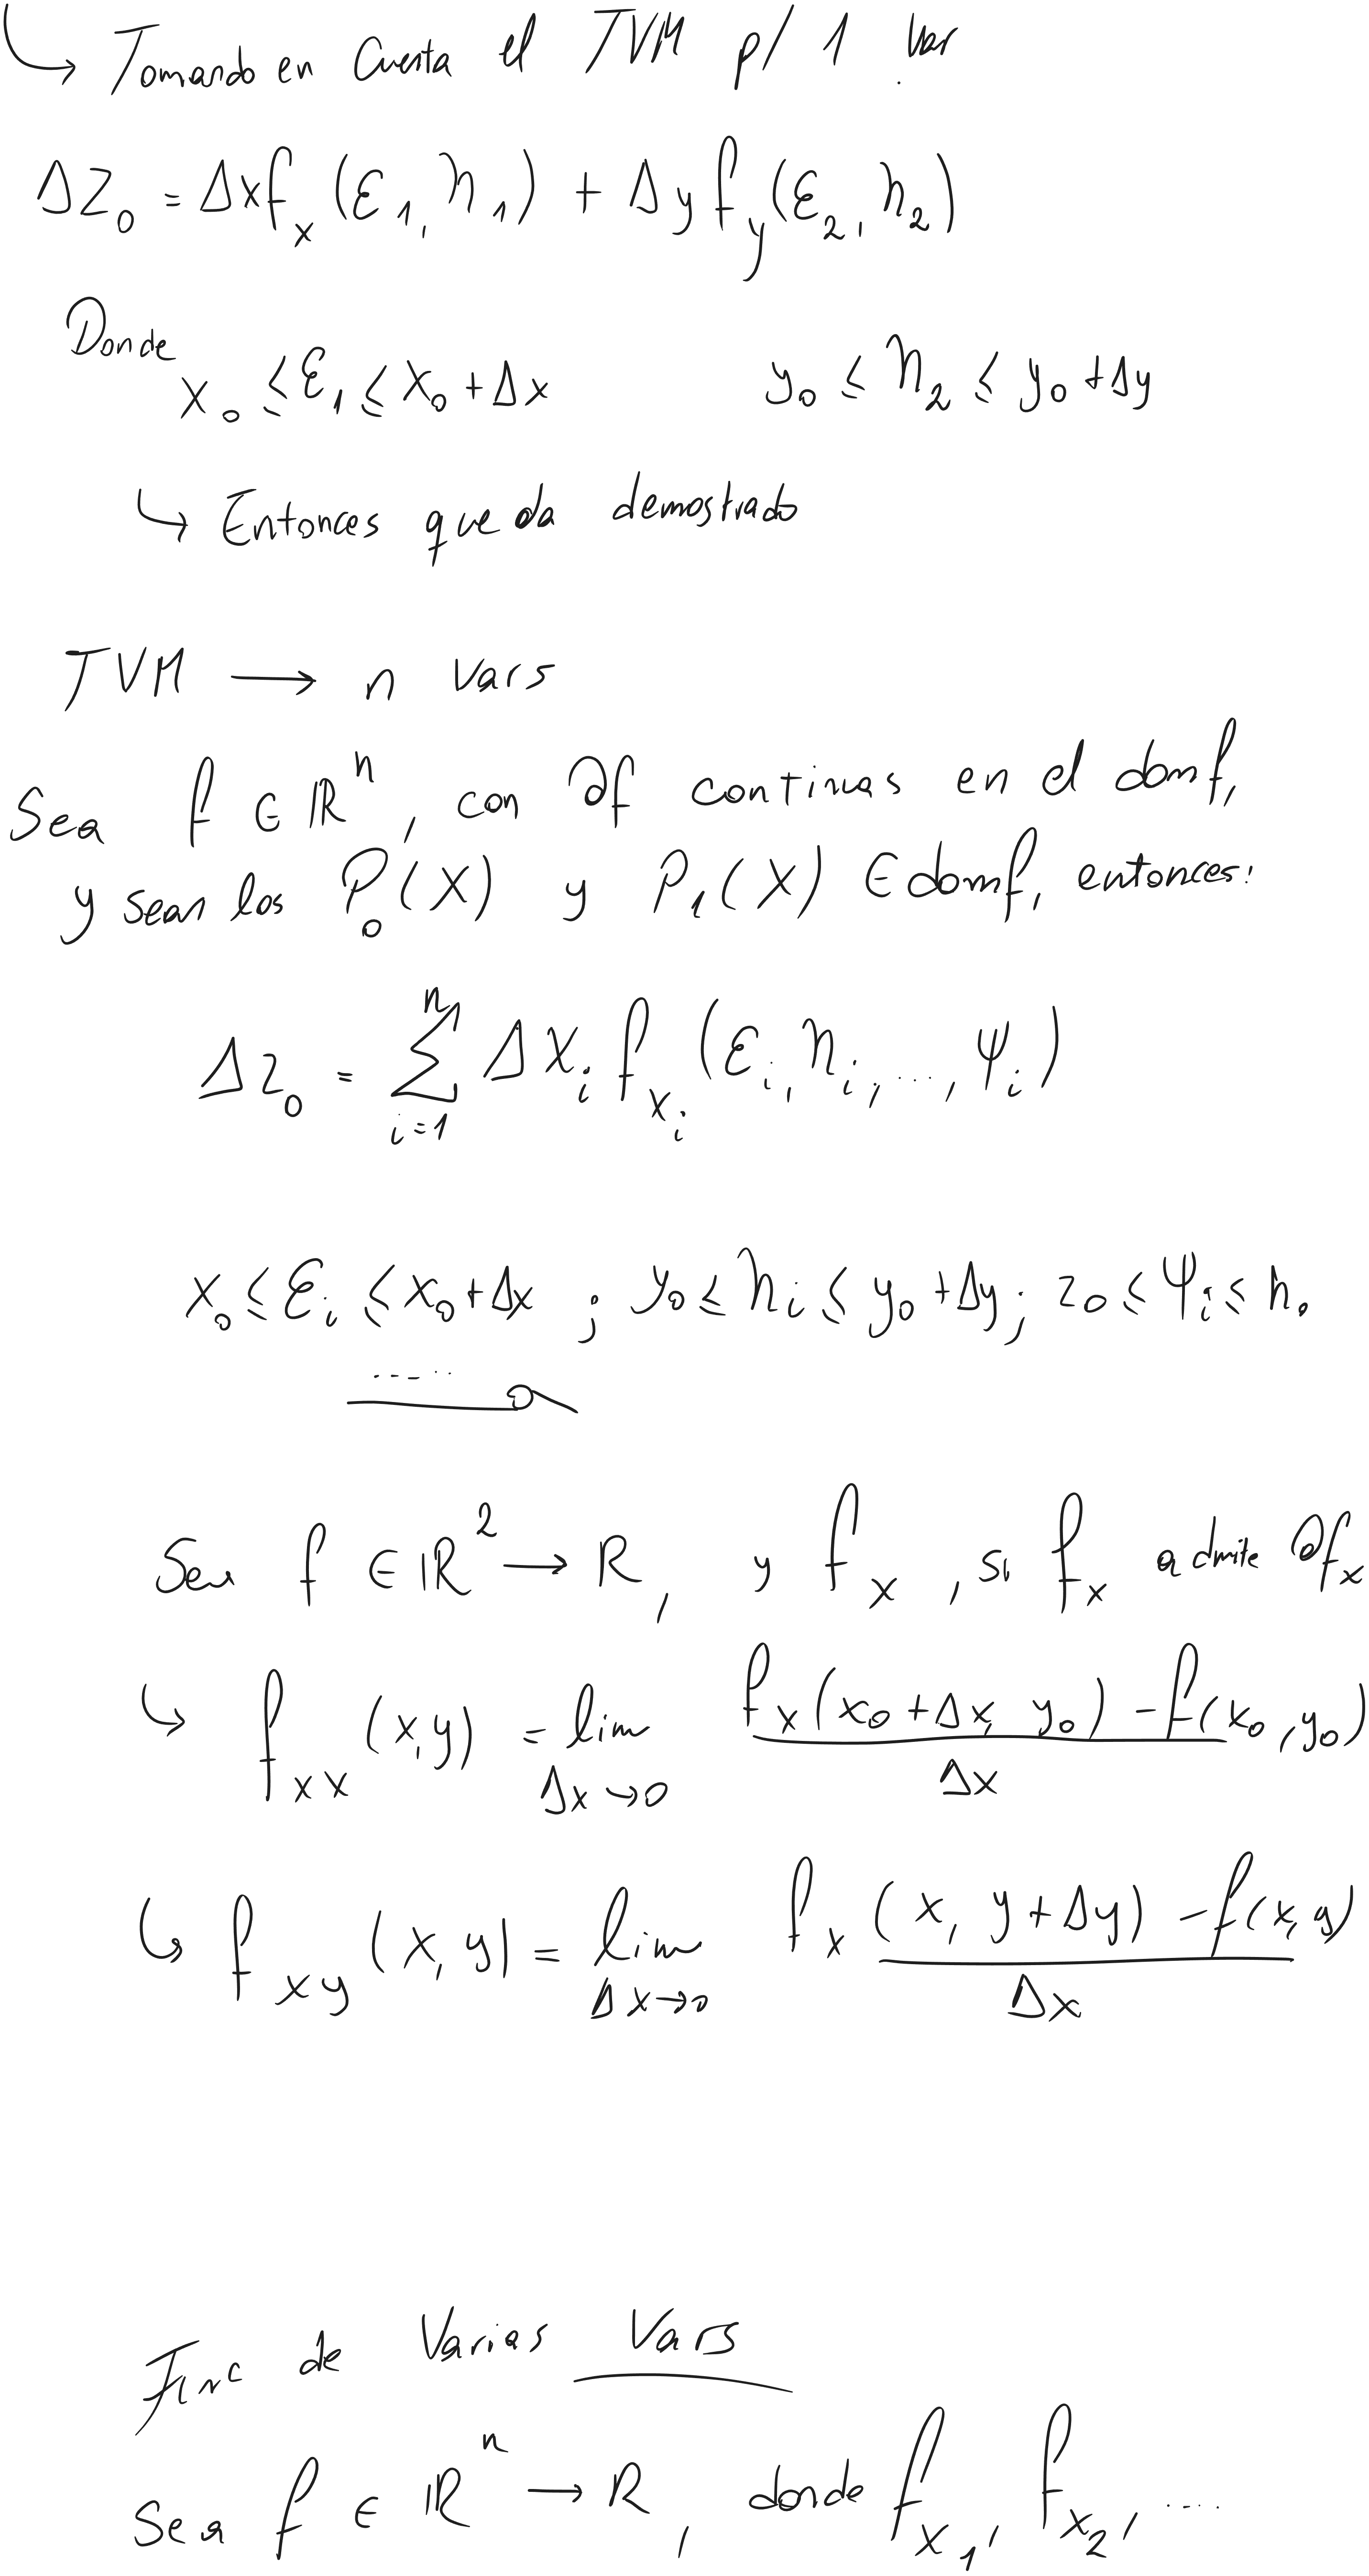 ↳ Tomando en Cuenta el TVM p/ 1 var
ΔZ₀ = Δx fₓ (ε₁, η₁) + Δy f_y (ε₂, η₂)
Donde
x₀ ≤ ε₁ ≤ x₀ + Δx    y₀ ≤ η₂ ≤ y₀ + Δy
↳ Entonces queda demostrado
TVM → n vars
Sea f ∈ ℝⁿ, con ∂f continuas en el dom f,
y sean los P₀(X) y P₁(X) ∈ dom f, entonces:
Δz₀ = Σ_{i=1}^{n} ΔX_i f_{x_i} (ε_i, η_i, ..., ψ_i)
x₀ ≤ ε_i ≤ x₀ + Δx ; y₀ ≤ η_i ≤ y₀ + Δy ; z₀ ≤ ψ_i ≤ h.
.....
Sea f ∈ ℝ² → R, y fₓ, si fₓ admite ∂fₓ
↳ f_{xx} (x,y) = lim_{Δx→0} \frac{fₓ(x₀ + Δx, y₀) - f(x₀, y₀)}{Δx}
↳ f_{xy} (x,y) = lim_{Δx→0} \frac{fₓ(x, y + Δy) - f(x,y)}{Δx}
Func de Varias Vars
Sea f ∈ ℝⁿ → R, donde f_{x₁}, f_{x₂}, ....